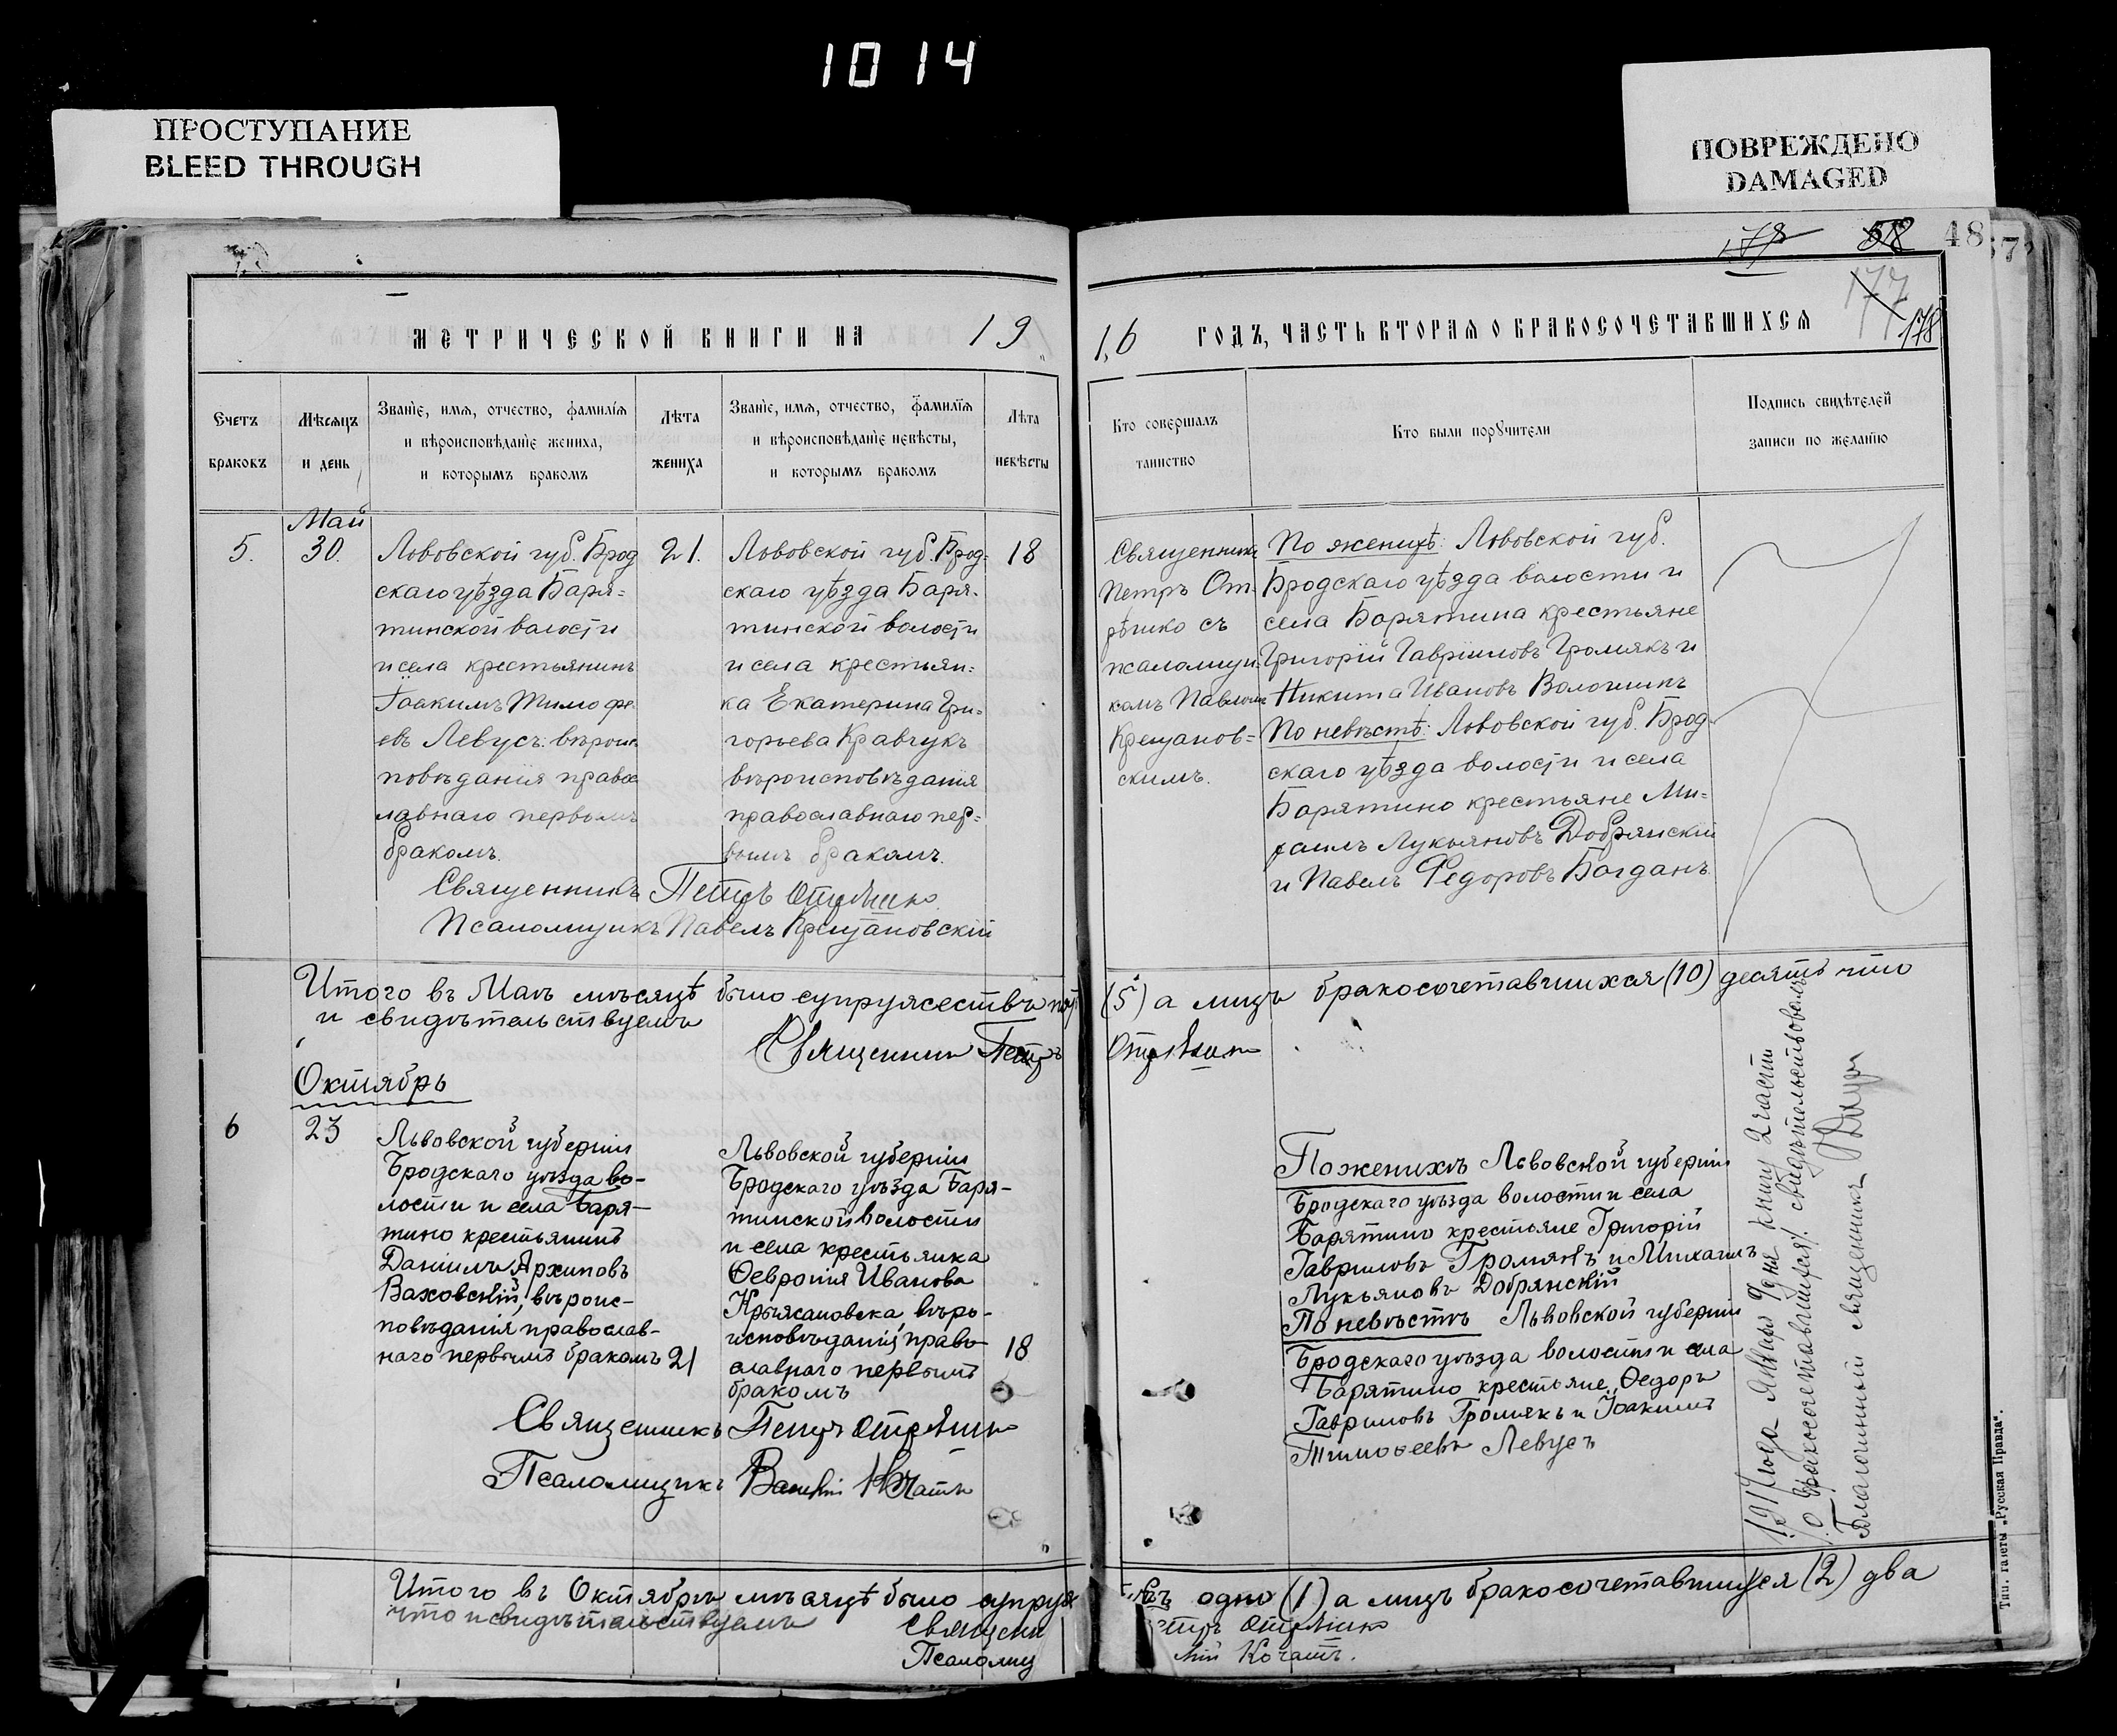 1014
ПРОСТУПАНИЕ
BLEED THROUGH
ПОВРЕЖДЕНО
DAMAGED
178 58 48
177
178
МЕТРИЧЕСКОЙ КНИГИ НА 19
16 ГОДЪ, ЧАСТЬ ВТОРАЯ О БРАКОСОЧЕТАВШИХСЯ
Счетъ
браковъ
Мѣсяцъ
и день
Званіе, имя, отчество, фамилія
и вѣроисповѣданіе жениха,
и которымъ бракомъ
Лѣта
жениха
Званіе, имя, отчество, фамилія
и вѣроисповѣданіе невѣсты,
и которымъ бракомъ
Лѣта
невѣсты
Кто совершалъ
таинство
Кто были порꙋчители
Подпись свидѣтелей
записи по желанію
5.
Май
30.
Львовской губ. Брод
скаго уѣзда Баря-
тинской волости
и села крестьянинъ
Іоакимъ Тимофе
евъ Левусъ: вѣроис
повѣданія правос
лавнаго первымъ
бракомъ.
21.
Львовской губ. Брод-
скаго уѣзда Баря-
тинской волости
и села крестьян-
ка Екатерина Гри-
горьева Кравчукъ
вѣроисповѣданія
православнаго пер-
вымъ бракомъ.
18
Священникъ Петръ Отрѣшко.
Псаломщикъ Павелъ Крещановскій
Священникъ
Петръ От-
рѣшко съ
псаломщи-
комъ Павломъ
Крещанов-
скимъ.
По женихѣ: Львовской губ.
Бродскаго уѣзда волости и
села Барятина крестьяне
Григорій Гавріиловъ Громякъ и
Никита Ивановъ Волошинъ
По невѣстѣ: Львовской губ. Брод-
скаго уѣзда волости и села
Барятино крестьяне Ми-
хаилъ Лукьяновъ Добрянскій
и Павелъ Федоровъ Богданъ.
Итого въ Маѣ мѣсяцѣ было супружествъ пять
и свидѣтельствуемъ
Священникъ Петръ
(5) а лицъ бракосочетавшихся (10) десять что
Отрѣшко
Октябрь
6
23
Львовской губерніи
Бродскаго уѣзда во-
лости и села Баря-
тино крестьянинъ
Даніилъ Архиповъ
Ваховскій, вѣроис-
повѣданія православ-
наго первымъ бракомъ 21
Львовской губерніи
Бродскаго уѣзда Баря-
тинской волости
и села крестьянка
Ѳевронія Иванова
вѣро-
исповѣданія право-
славнаго первымъ
бракомъ
18
Священникъ Петръ Отрѣшко
Псаломщикъ
По женихѣ Львовской губерніи
Бродскаго уѣзда волости и села
Барятино крестьяне Григорій
Гавриловъ Громякъ и Михаилъ
Лукьяновъ Добрянскій
По невѣстѣ Львовской губерніи
Бродскаго уѣзда волости и села
Барятино крестьяне Ѳедоръ
Гавриловъ Громякъ и Іоакимъ
Тимоѳеевъ Левусъ
1917 года Января 9 дня книгу 2 части
о бракосочетавшихся свидѣтельствовалъ
Благочинный священникъ
Итого въ Октябрѣ мѣсяцѣ было супруж
что и свидѣтельствуемъ
Священ
Псаломщ
одно (1) а лицъ бракосочетавшихся (2) два
етръ Отрѣшко
Кочатъ.
Тип. газеты „Русская Правда“.